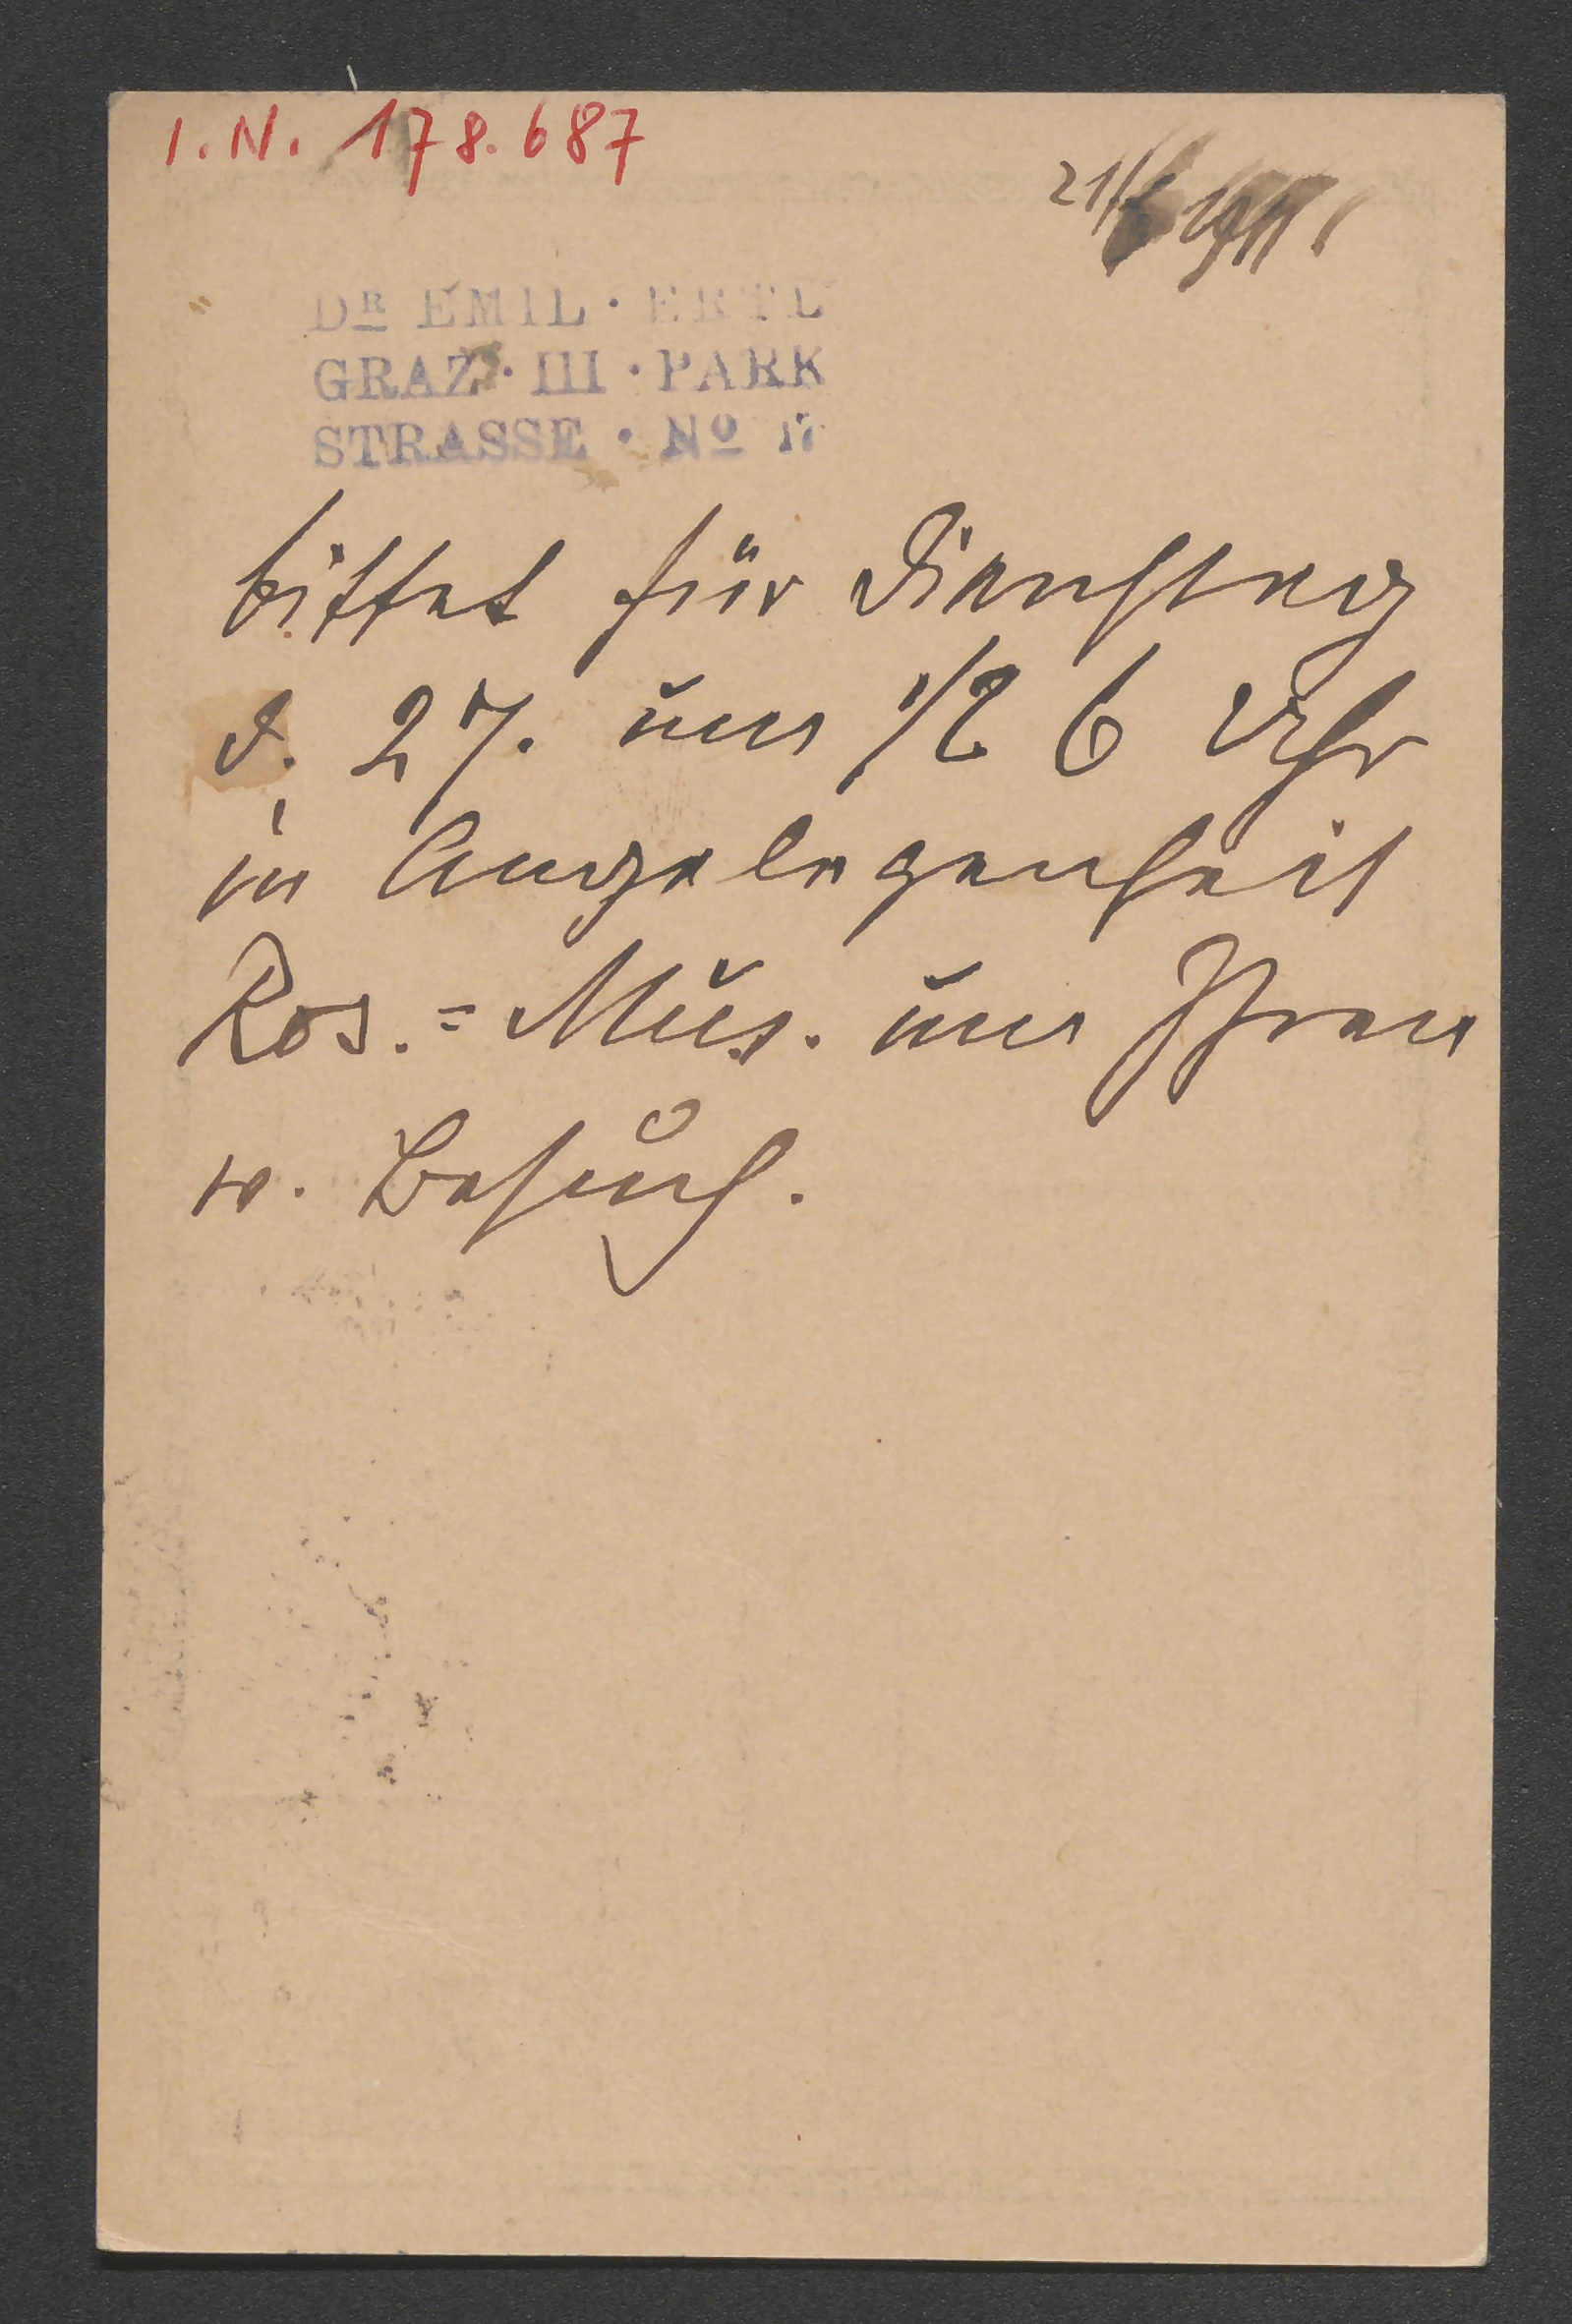 I. N. 178.687
DR EMIL · ERTL
GRAZ · III · PARK
STRASSE · No 17
bittet für Dienstag
d. 27. um 1/2 6 Uhr
in Angelegenheit
Ros.= Mus. um Ihren
w. Besuch.